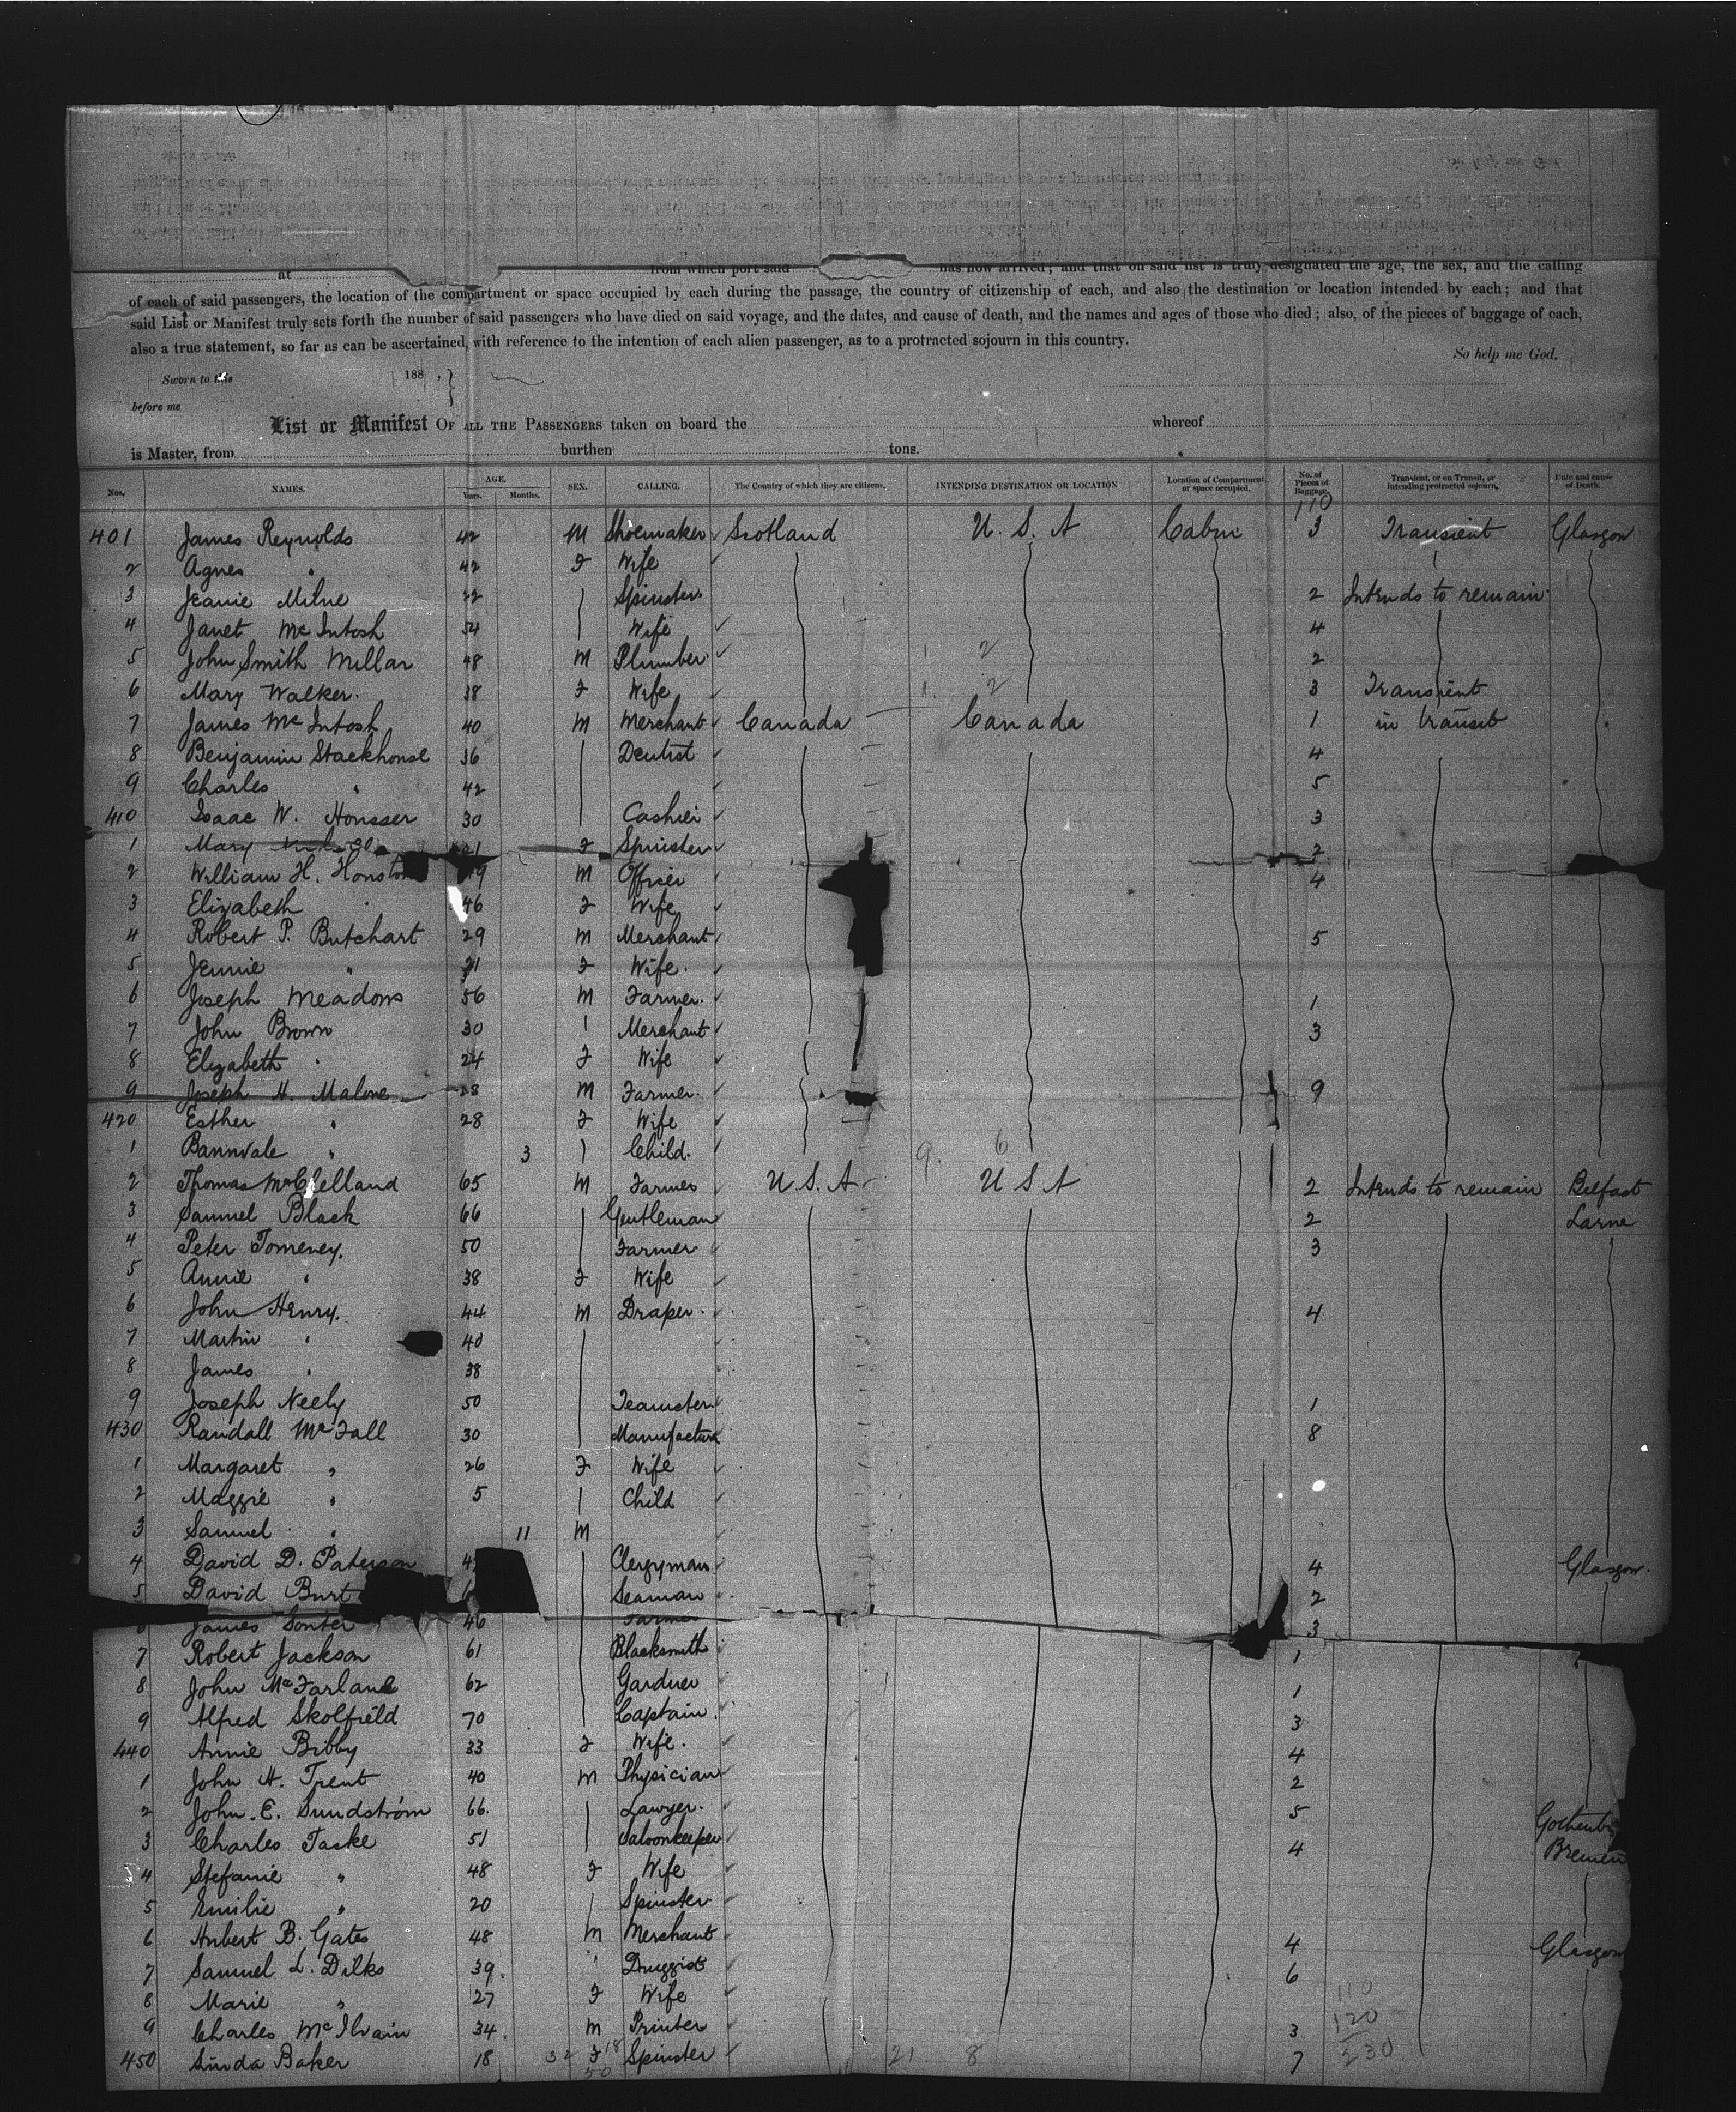 at from which port said has now arrived; and that on said list is truly designated the age, the sex, and the calling
of each of said passengers, the location of the compartment or space occupied by each during the passage, the country of citizenship of each, and also the destination or location intended by each; and that
said List or Manifest truly sets forth the number of said passengers who have died on said voyage, and the dates, and cause of death, and the names and ages of those who died; also, of the pieces of baggage of each,
also a true statement, so far as can be ascertained, with reference to the intention of each alien passenger, as to a protracted sojourn in this country.
So help me God.
Sworn to this 188 ,
before me
List or Manifest OF ALL THE PASSENGERS taken on board the whereof
is Master, from burthen tons.
Nos. NAMES. AGE. Years. Months. SEX. CALLING. The Country of which they are citizens. INTENDING DESTINATION OR LOCATION Location of Compartment or space occupied. No. of Pieces of Baggage. Transient, or on Transit, or intending protracted sojourn. Date and cause of Death.
110
401 James Reynolds 42 M Shoemaker Scotland U. S. A Cabin 3 Transient Glasgow
2 Agnes " 42 F Wife
3 Jeanie Milne 22 Spinster 2 Intends to remain
4 Janet McIntosh 54 Wife 4
5 John Smith Millar 48 M Plumber 1 2 2
6 Mary Walker. 38 F Wife 1. 2 3 Transient
7 James McIntosh 40 M Merchant Canada Canada 1 in transit
8 Benjamin Stackhouse 36 Dentist 4
9 Charles " 42 5
410 Isaac W. Housser 30 Cashier 3
1 Mary 21 F Spinster 2
2 William H. Houston 49 M Officer 4
3 Elizabeth 46 F Wife
4 Robert P. Butchart 29 M Merchant 5
5 Jennie " 21 F Wife.
6 Joseph Meadows 56 M Farmer. 1
7 John Brown 30 Merchant 3
8 Elizabeth " 24 F Wife
9 Joseph H. Malone 28 M Farmer. 9
420 Esther " 28 F Wife
1 Bannvale " 3 Child. 9. 6
2 Thomas McClelland 65 M Farmer U.S.A U S A 2 Intends to remain Belfast
3 Samuel Black 66 Gentleman 2 Larne
4 Peter Tomeney. 50 Farmer. 3
5 Annie " 38 F Wife
6 John Henry. 44 M Draper. 4
7 Martin " 40
8 James " 38
9 Joseph Neely 50 Teamster 1
430 Randall McFall 30 Manufacturer 8
1 Margaret " 26 F Wife
2 Maggie " 5 Child
3 Samuel " 11 M
4 David D. Paterson Clergyman 4 Glasgow.
5 David Burt Seaman 2
6 James Souter 46 Farmer 3
7 Robert Jackson 61 Blacksmith 1
8 John McFarlane 62 Gardner 1
9 Alfred Skolfield 70 Captain. 3
440 Annie Bibby 33 F Wife. 4
1 John H. Trent 40 M Physician 2
2 John. E. Sundström 66. Lawyer. 5
3 Charles Taske 51 Saloonkeeper 4 Bremen
4 Stefanie " 48 F Wife
5 Emilie " 20 Spinster
6 Hubert B. Gates 48 M Merchant 4 Glasgow
7 Samuel L. Dilks 39. " Druggist 6
8 Marie " 27 F Wife 110
9 Charles McIlvain 34. M Printer 3 120
450 Linda Baker 18 32 F 18 Spinster 21 8 7 230
50